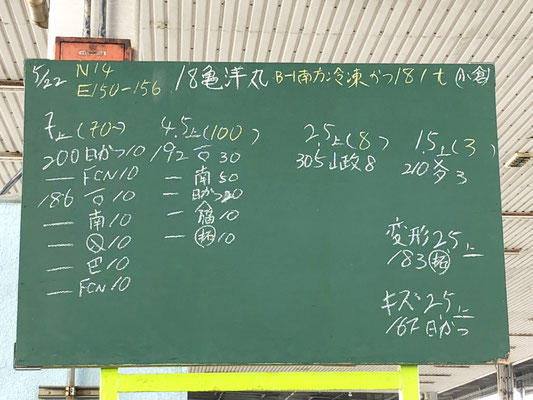 5/22 N14 E150-156 18亀洋丸 B-1南方冷凍かつ181t (小倉)
7上(70)
200日かつ10
ー FCN10
186 10
ー 南10
ー 10
ー 巴10
ー FCN10
4.5上(100)
192 30
ー 南50
ー 日かつ
ー 10
ー 10
2.5上(8)
305山政8
1.5上(3)
210 3
変形2.5上
183
キズ2.5上
167日かつ